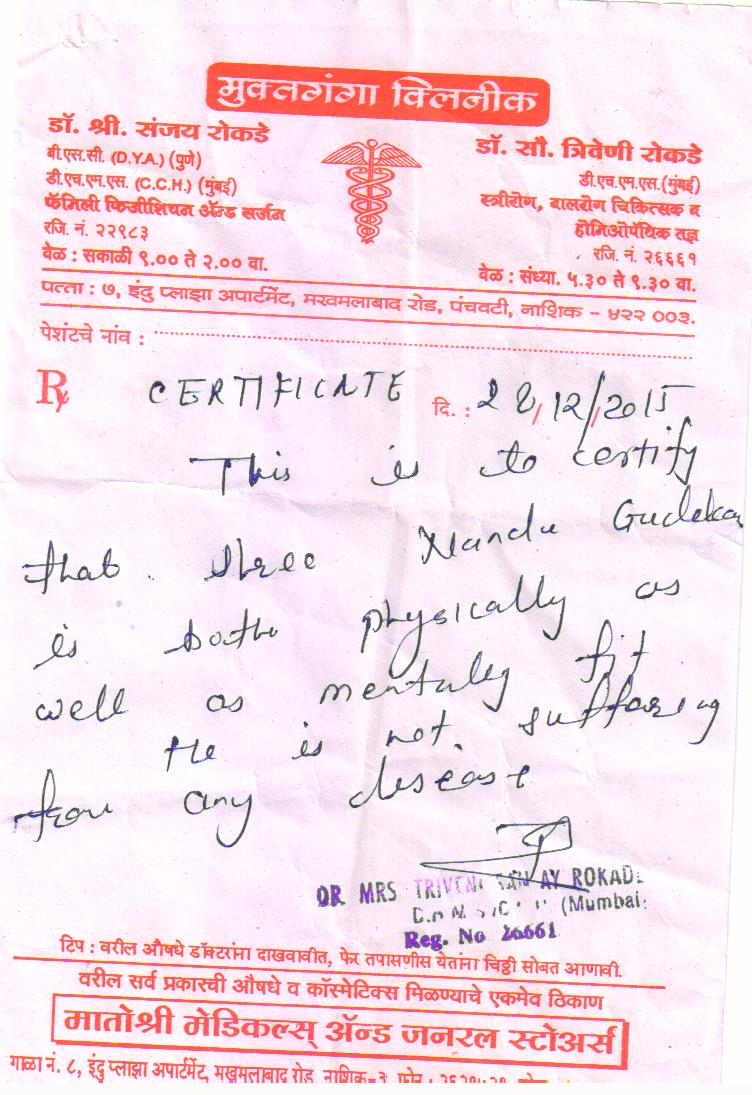 मुक्तगंगा क्लिनीक
डॉ. श्री. संजय रोकडे
बी.एस.सी. (D.Y.A.) (पुणे)
डी.एच.एम.एस. (C.C.H.) (मुंबई)
फॅमिली फिजीशियन ॲन्ड सर्जन
रजि. नं. २२९८३
वेळ : सकाळी ९.०० ते २.०० वा.
डॉ. सौ. त्रिवेणी रोकडे
डी.एच.एम.एस. (मुंबई)
स्त्रीरोग, बालरोग चिकित्सक व
होमिओपॅथिक तज्ञ
रजि. नं. २६६६१
वेळ : संध्या. ५.३० ते ९.३० वा.
पत्ता : ७, इंदु प्लाझा अपार्टमेंट, मखमलाबाद रोड, पंचवटी, नाशिक - ४२२ ००३.
पेशंटचे नांव :
Rx CERTIFICATE दि. : 28/12/2015
This is to certify
that shree Nandu Gudekar
is both physically as
well as mentally fit
He is not suffaring
from any disease
DR. MRS TRIVENI SANJAY ROKADE
(Mumbai)
Reg. No 26661
टिप : वरील औषधे डॉक्टरांना दाखवावीत, फेर तपासणीस येतांना चिठ्ठी सोबत आणावी.
वरील सर्व प्रकारची औषधे व कॉस्मेटिक्स मिळण्याचे एकमेव ठिकाण
मातोश्री मेडिकल्स् ॲन्ड जनरल स्टोअर्स
गाळा नं. ८, इंदु प्लाझा अपार्टमेंट, मखमलाबाद रोड, नाशिक-३. फोन :